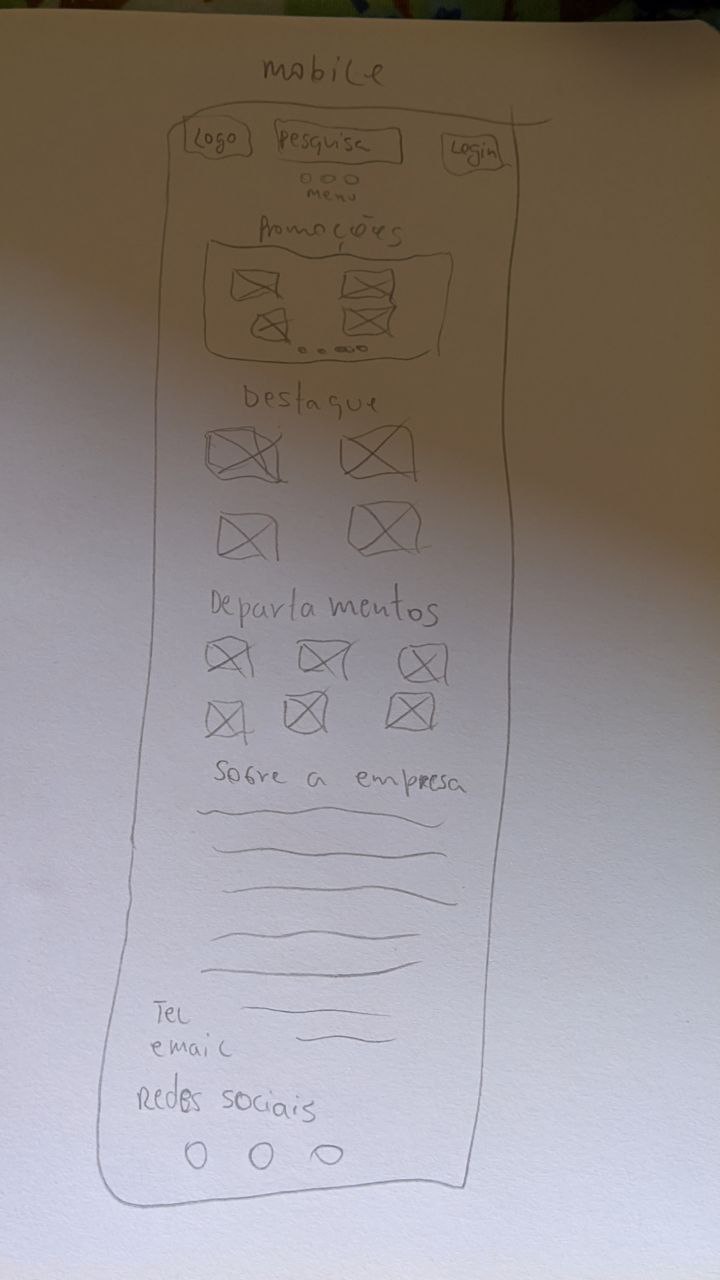 mobile
Logo Pesquisa Login
menu
Promoções
Destaque
Departamentos
Sobre a empresa
Tel
email
Redes sociais